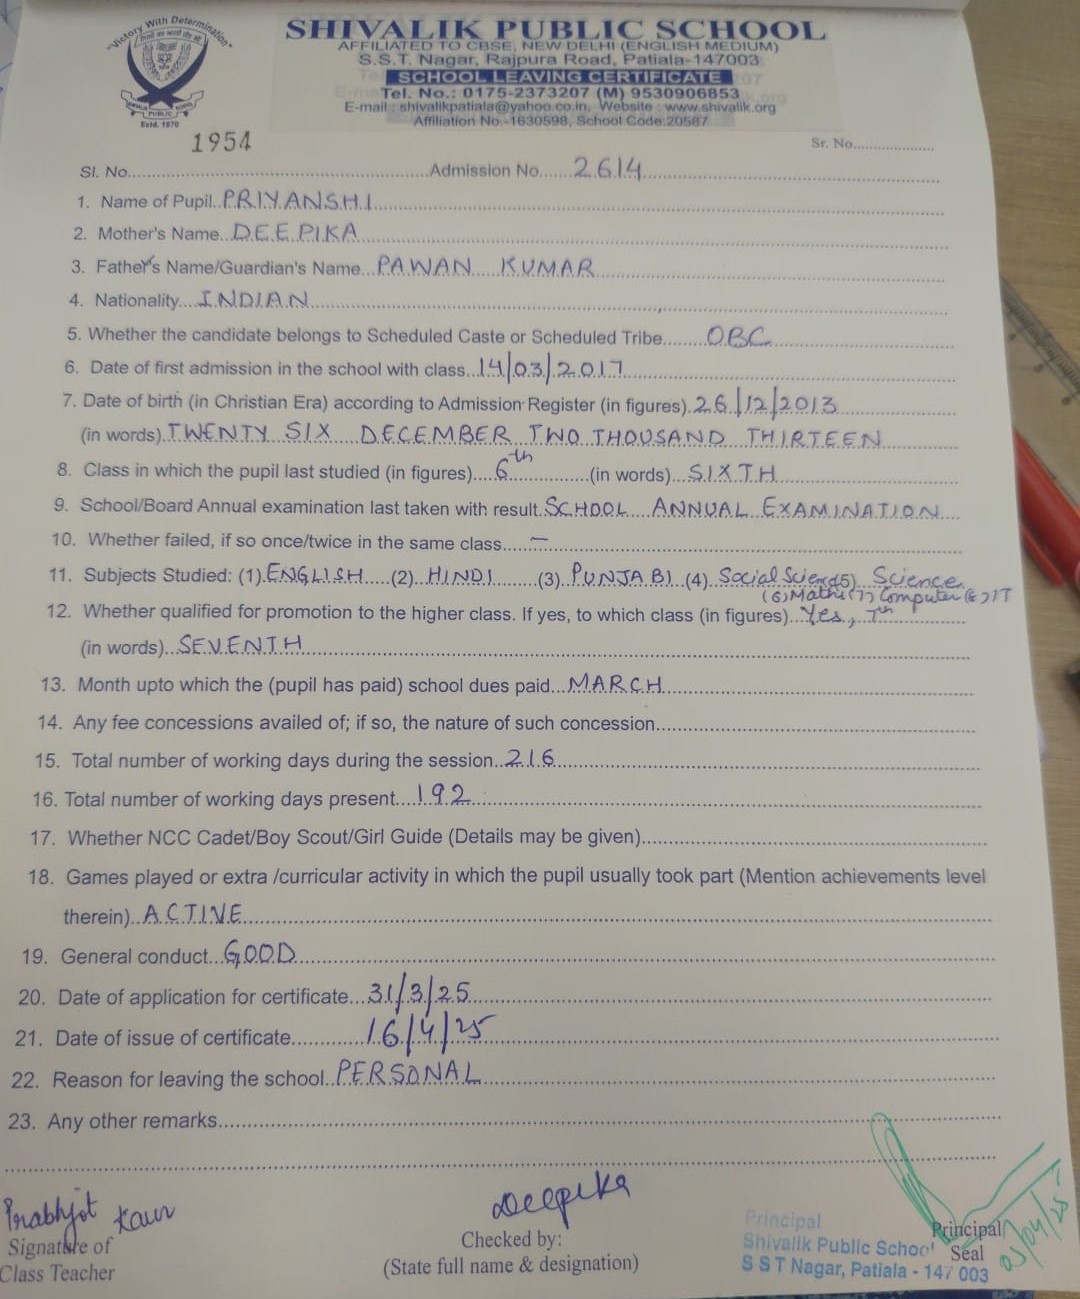 "Victory With Determination"
PUBLIC
Estd. 1970
SHIVALIK PUBLIC SCHOOL
AFFILIATED TO CBSE, NEW DELHI (ENGLISH MEDIUM)
S.S.T. Nagar, Rajpura Road, Patiala-147003
SCHOOL LEAVING CERTIFICATE
Tel. No.: 0175-2373207 (M) 9530906853
E-mail : shivalikpatiala@yahoo.co.in, Website : www.shivalik.org
Affiliation No.-1630598, School Code:20587
1954
Sr. No.
Sl. No. Admission No. 2614
1. Name of Pupil PRIYANSHI
2. Mother's Name DEEPIKA
3. Father's Name/Guardian's Name PAWAN KUMAR
4. Nationality INDIAN
5. Whether the candidate belongs to Scheduled Caste or Scheduled Tribe OBC
6. Date of first admission in the school with class 14/03/2017
7. Date of birth (in Christian Era) according to Admission Register (in figures) 26/12/2013
(in words) TWENTY SIX DECEMBER TWO THOUSAND THIRTEEN
8. Class in which the pupil last studied (in figures) 6th (in words) SIXTH
9. School/Board Annual examination last taken with result SCHOOL ANNUAL EXAMINATION
10. Whether failed, if so once/twice in the same class —
11. Subjects Studied: (1) ENGLISH (2) HINDI (3) PUNJABI (4) Social Science (5) Science
(6) Maths (7) Computer (8) IT
12. Whether qualified for promotion to the higher class. If yes, to which class (in figures) Yes, 7th
(in words) SEVENTH
13. Month upto which the (pupil has paid) school dues paid MARCH
14. Any fee concessions availed of; if so, the nature of such concession
15. Total number of working days during the session 216
16. Total number of working days present 192
17. Whether NCC Cadet/Boy Scout/Girl Guide (Details may be given)
18. Games played or extra /curricular activity in which the pupil usually took part (Mention achievements level
therein) ACTIVE
19. General conduct GOOD
20. Date of application for certificate 31/3/25
21. Date of issue of certificate 16/4/25
22. Reason for leaving the school PERSONAL
23. Any other remarks
Prabhjot Kaur
Signature of
Class Teacher
Deepika
Checked by:
(State full name & designation)
Principal
Shivalik Public School
S S T Nagar, Patiala - 147 003
Principal
Seal